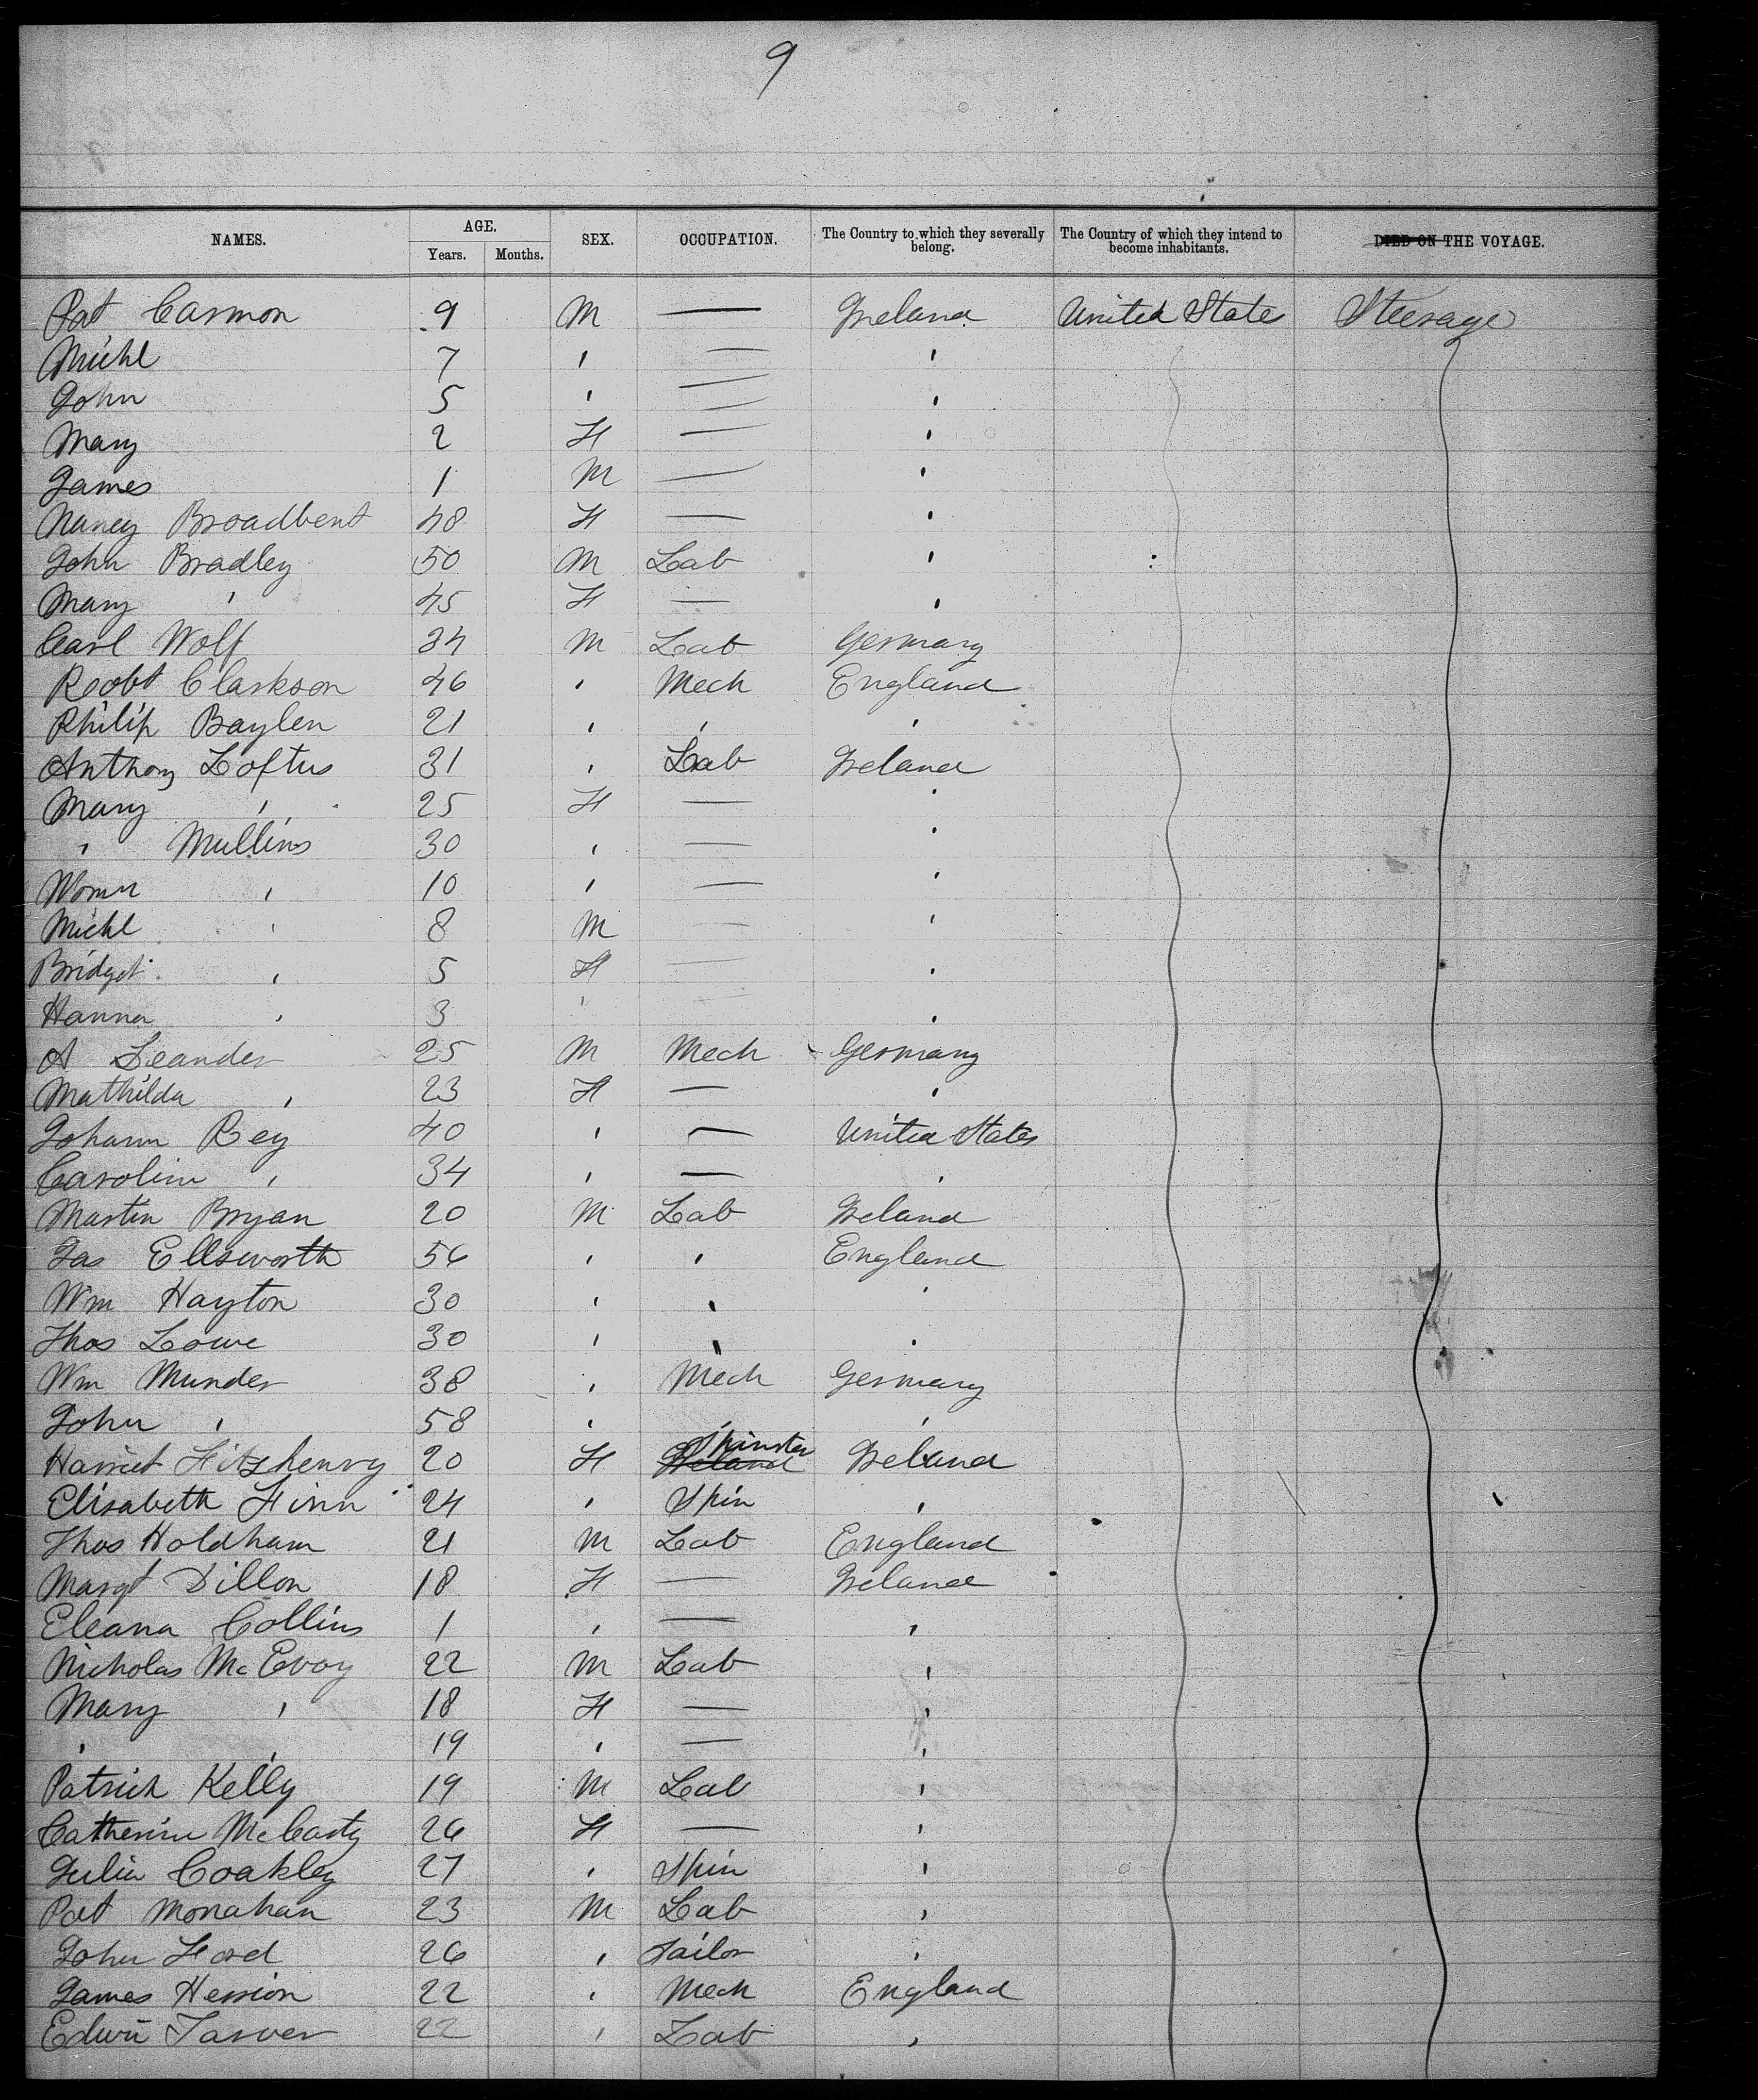 9
NAMES. AGE. SEX. OCCUPATION. The Country to which they severally belong. The Country of which they intend to become inhabitants. DIED ON THE VOYAGE.
Years. Months.
Pat Carmon 9 M — Ireland United State Steerage
Michl 7 " — "
John 5 " — "
Mary 2 F — "
James 1 M — "
Nancy Broadbent 48 F — "
John Bradley 50 M Lab "
Mary " 45 F — "
Carl Wolf 34 M Lab Germany
Robt Clarkson 46 " Mech England
Philip Baylen 21 " " "
Anthony Loftus 31 " Lab Ireland
Mary " 25 F — "
" Mullins 30 " — "
" 10 " — "
Michl " 8 M — "
Bridget " 5 F — "
Hanna " 3 " "
A Leander 25 M Mech Germany
Mathilda " 23 F — "
Johann Rey 40 " — United States
Carolin " 34 " — "
Martin Bryan 20 M Lab Ireland
Jas Ellsworth 56 " " England
Wm Hayton 30 " " "
Thos Lowe 30 " " "
Wm Munder 38 " Mech Germany
John " 58 " "
Harriet Fitzhenry 20 F Ireland Spinster Ireland
Elisabeth Finn 24 " Spin "
Thos Holdham 21 M Lab England
Margt Dillon 18 F — Ireland
Eleana Collins 1 " — "
Nicholas McEvoy 22 M Lab "
Mary " 18 F — "
" " 19 " — "
Patrick Kelly 19 M Lab "
Catherine McCarty 26 F — "
Julia Coakley 27 " Spin "
Pat Monahan 23 M Lab "
John Ford 26 " Tailor "
James Hession 22 " Mech England
Edwin Tarver 22 " Lab "